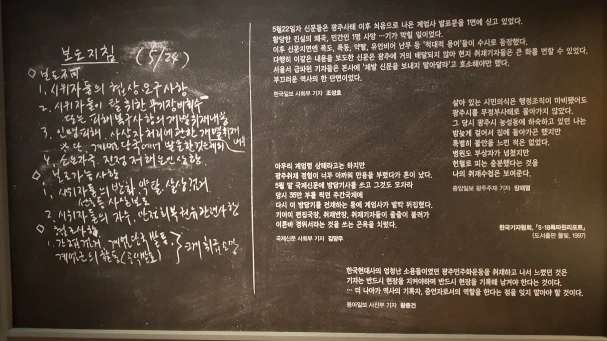 보도지침 (5/24)
보도지역
1. 시위자들의 협상 요구사항
2. 시위자들이 탈취한 무기장비회수
또는 피해복구사항의 개별취재내용
3. 인명피해, 사상자 처리에 관한 개별취재
내용
1. 시위자들의 방화, 약탈, 살상
선동 등 사실보도
2. 시위자들의 자수,
5월22일자 신문들은 광주사태 이후 처음으로 나온 계엄사 발표문을 1면에 싣고 있었다.
황당한 진실의 왜곡, 민간인 1명 사망 …기가 막힐 일이었다.
이후 신문지면엔 폭도, 폭동, 약탈, 유언비어 난무 등 '적대적 용어'들이 수시로 등장했다.
다행히 이같은 내용을 보도한 신문은 광주에 거의 배달되지 않아 현지 취재기자들은 큰 화를 면할 수 있었다.
서울서 급파된 기자들은 본사에 '제발 신문을 보내지 말아달라'고 호소해야만 했다.
부끄러운 역사의 한 단면이었다.
한국일보 사회부 기자 조성호
살아 있는 시민의식은 행정조직이 마비됐어도
광주시를 무정부사태로 몰아가지 않았다.
그 당시 광주시 농성동에 하숙하고 있던 나는
밤늦게 걸어서 집에 돌아가곤 했지만
특별히 불안을 느낀 적은 없었다.
병원도 부상자가 넘쳤지만
헌혈로 피는 충분했다는 것을
나의 취재수첩은 보여준다.
중앙일보 광주주재 기자 장재열
아무리 계엄령 상태라고는 하지만
광주취재 경험이 너무 아까워 만용을 부렸다가 혼이 났다.
5월 말 국제신문에 방담기사를 쓰고 그것도 모자라
당시 35만 부를 찍던 주간국제에
다시 이 방담기를 전재하는 통에 계엄사가 발칵 뒤집혔다.
기어이 편집국장, 취재반장, 취재기자들이 줄줄이 불려가
이른바 경위서라는 것을 쓰는 곤욕을 치렀다.
국제신문 사회부 기자 김양우
한국기자협회, 「5·18특파원리포트」
(도서출판 풀빛, 1997)
한국현대사의 엄청난 소용돌이였던 광주민주화운동을 취재하고 나서 느꼈던 것은
기자는 반드시 현장을 지켜야하며 반드시 현장을 기록해 남겨야 한다는 것이다.
… 더 나아가 역사의 기록자, 증언자로서의 역할을 한다는 점을 잊지 말아야 할 것이다.
동아일보 사진부 기자 황종건